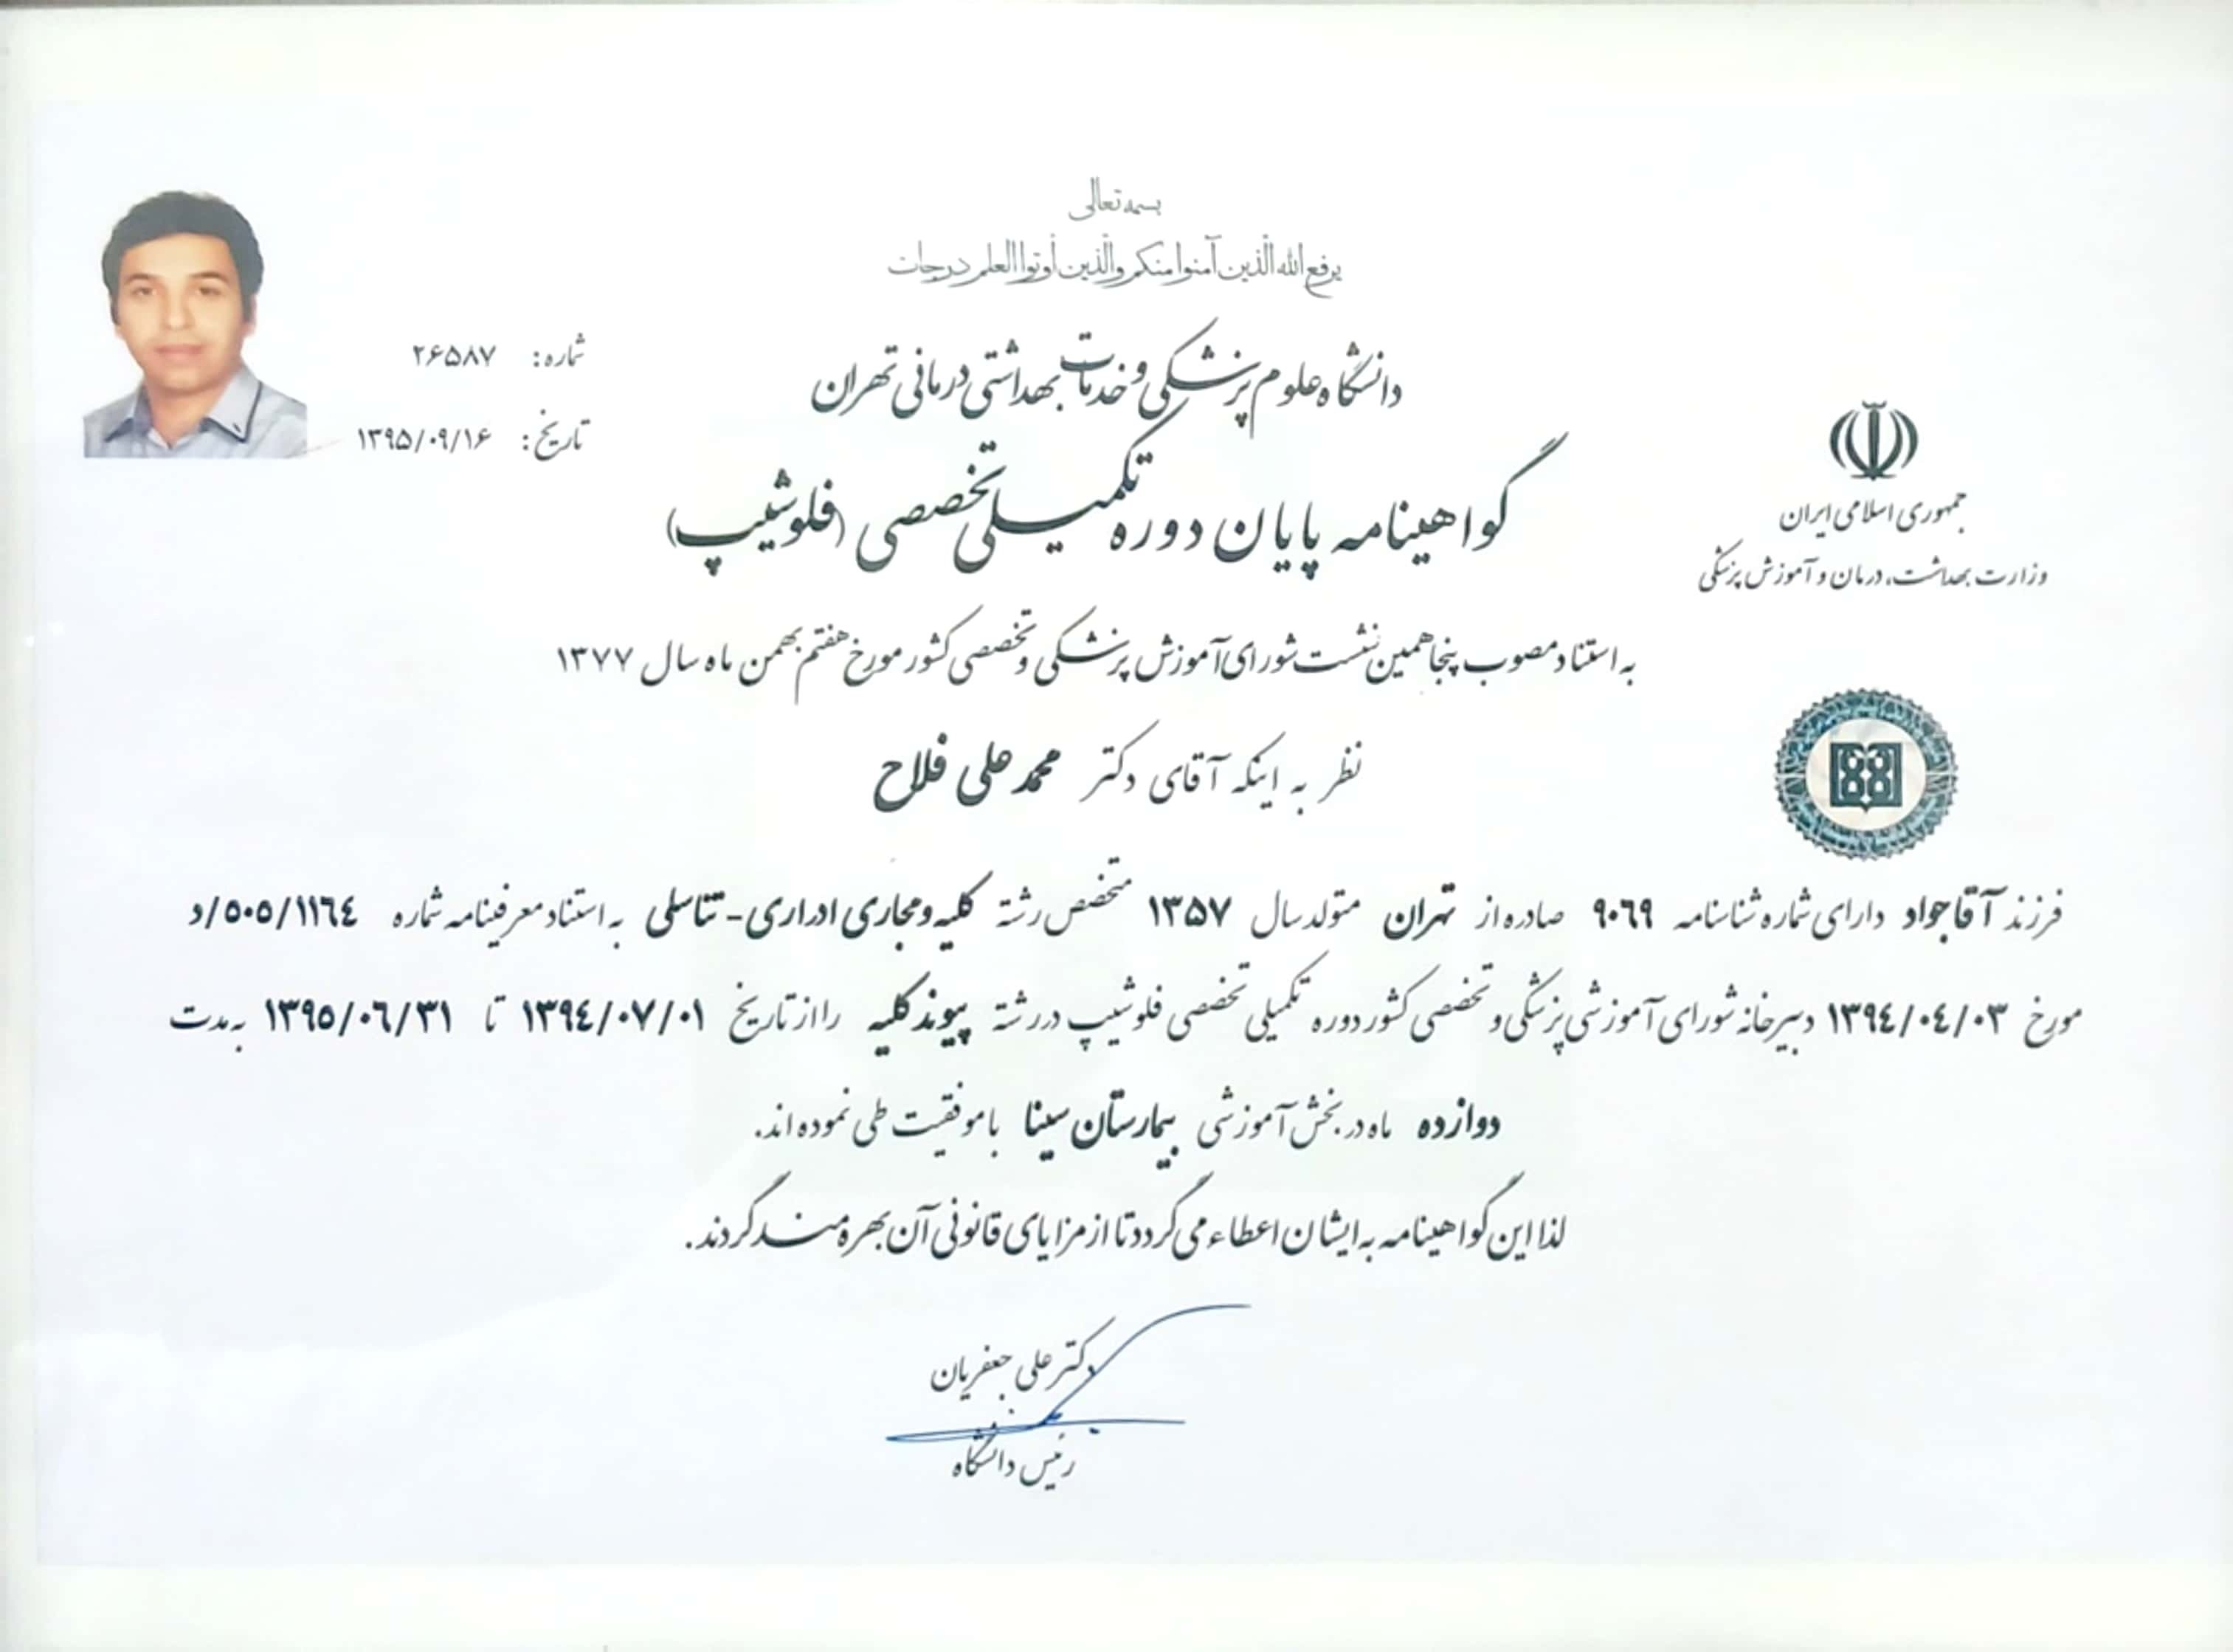 بسمه تعالی
یرفع الله الذین آمنوا منکم والذین أوتوا العلم درجات
دانشگاه علوم پزشکی و خدمات بهداشتی درمانی تهران
گواهینامه پایان دوره تکمیلی تخصصی (فلوشیپ)
شماره: ۲۶۵۸۷
تاریخ: ۱۳۹۵/۰۹/۱۶
جمهوری اسلامی ایران
وزارت بهداشت، درمان و آموزش پزشکی
به استناد مصوب پنجاهمین نشست شورای آموزش پزشکی و تخصصی کشور مورخ هفتم بهمن ماه سال ۱۳۷۷
نظر به اینکه آقای دکتر محمد علی فلاح
فرزند آقا جواد دارای شماره شناسنامه ۹۰۶۹ صادره از تهران متولد سال ۱۳۵۷ متخصص رشته کلیه و مجاری ادراری - تناسلی به استناد معرفینامه شماره ۵۰۵/۱۱۶۴/د
مورخ ۱۳۹۴/۰۴/۰۳ دبیرخانه شورای آموزشی پزشکی و تخصصی کشور دوره تکمیلی تخصصی فلوشیپ در رشته پیوند کلیه را از تاریخ ۱۳۹۴/۰۷/۰۱ تا ۱۳۹۵/۰۶/۳۱ به مدت
دوازده ماه در بخش آموزشی بیمارستان سینا با موفقیت طی نموده اند.
لذا این گواهینامه به ایشان اعطاء می گردد تا از مزایای قانونی آن بهره مند گردند.
دکتر علی جعفریان
رئیس دانشگاه